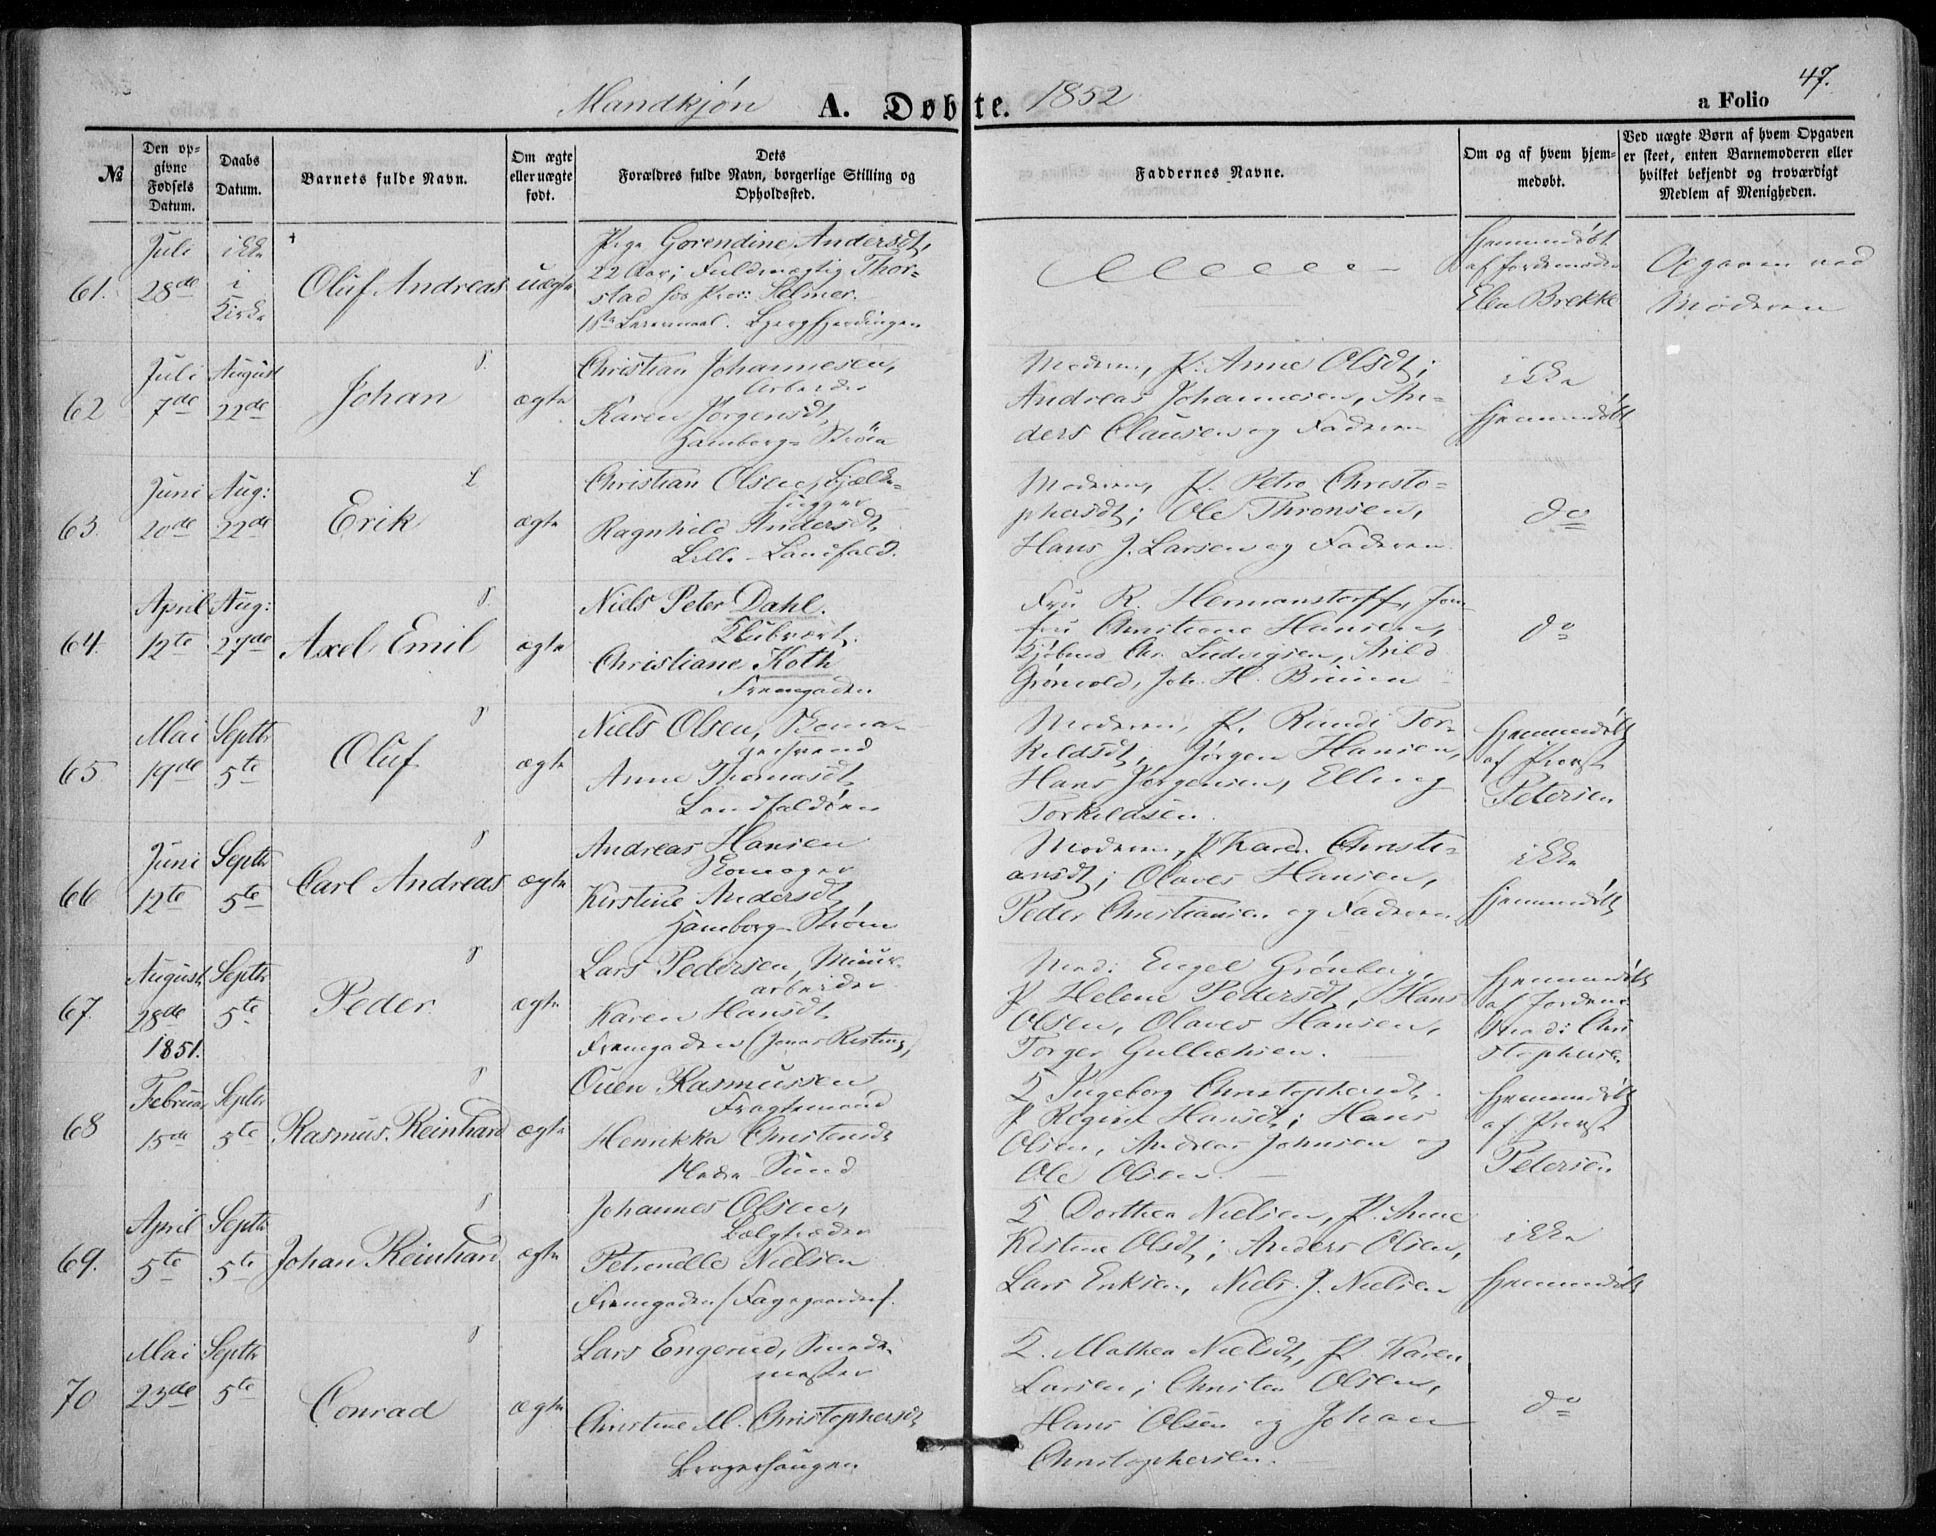 47.
Mandkjøn A. Døbte. 1852
a Folio
№
Den op-
givne
Fødsels
Datum.
Daabs
Datum.
Barnets fulde Navn.
Om ægte
eller uægte
født.
Dets
Forældres fulde Navn, borgerlige Stilling og
Opholdssted.
Faddernes Navne.
Om og af hvem hjem-
medøbt.
Ved uægte Børn af hvem Opgaven
er skeet, enten Barnemoderen eller
hvilket bekjendt og troværdigt
Medlem af Menigheden.
61.
Juli
28de
ikke
i
Kirke
Oluf Andreas
uægte
Pige Gorendine Andersdt,
22 Aar; Fuldmægtig Thor-
stad hos
1ste Leiermaal.
Hjemmedøbt
af Jordemoder
Elen Brekke
Opgaven ved
Moderen
62
Juli
7de
August
22de
Johan
ægte
Christian Johannesen,
Arbeider
Karen Jørgensdt,
Hamborg-Strøm
Moderen, P. Anne Olsdt;
Andreas Johannesen, An-
ders Clausen og Faderen
ikke
Hjemmedøbt
63.
Juni
20de
Aug:
22de
Erik
ægte
Christian Olsen, Bjælke-
hugger
Ragnhild Andersdt,
Lille-Landfald.
Moderen, P. Petro Christo-
phersdt; Ole Thronsen,
Hans J. Larsen og Faderen
do
64.
April
12te
Aug:
27de
Axel Emil
ægte
Niels Peter Dahl.
Klubvært.
Christiane Koth
Fremgaden
Fru R. Hermanstorff, Jom-
fru Christiane Hansen,
Kjøbmd Chr. Ludvigsen, Arild
Grønvold, Joh. H. Bruun
do
65
Mai
19de
Septbr
5te
Oluf
ægte
Niels Olsen, Skoma-
gersvend
Anne Thomasdt,
Landfaldøen
Moderen, P. Randi Tor-
kildsdt, Jørgen Hansen,
Hans Jørgensen, Elling
Torkildsen.
Hjemmedøbt
af Provst
Petersen
66
Juni
12te
Septbr
5te
Carl Andreas
ægte
Andreas Hansen
Skomager
Kirstine Andersdt,
Hamborg-Strøm
Moderen, P. Karen Christi-
ansdt; Olaves Hansen,
Peder Christiansen og Faderen
ikke
Hjemmedøbt
67.
August
28de
1851.
Septbr
5te
Peder
ægte
Lars Pedersen, Muur-
arbeider
Karen Hansdt,
Fremgaden (Jonas Risting)
Mad: Engel Grønberg,
P Helene Pedersdt, Hans
Olsen, Olaves Hansen,
Torger Gullichsen.
Hjemmedøbt
af Jordem.
Mad: Chri
stophersen
68
Februar
15de
Septbr
5te
Rasmus Reinhard
ægte
Ouen Rasmussen
Fragtemand
Henrikka Christensdt
Nedre Sund
K Ingeborg Christophersdt.
P Regine Hansdt; Hans
Olsen, Andreas Johnsen og
Ole Olsen.
Hjemmedøbt
af Provst
Petersen
69.
April
5te
Septbr
5te
Johan Reinhard
ægte
Johannes Olsen,
Bælgtræder
Petronelle Nielsen
Fremgaden (Fagegaarden).
K Dorthea Nielsen, P. Anne
Kistine Olsdt; Anders Olsen,
Lars Eriksen, Niels J. Nielsen
ikke
Hjemmedøbt
70
Mai
23de
Septbr
5te
Conrad
ægte
Lars Engerud, Smede-
mester
Christine M. Christophersdt
Bragerhaugen
K. Mathea Nielsdt, P. Karen
Larsen; Christen Olsen,
Hans Olsen og Johan
Christophersen.
do